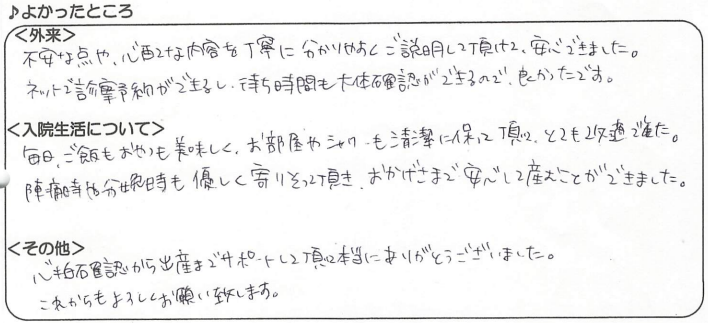 ♪よかったところ
<外来>
不安な点や、心配な内容を丁寧に分かりやすくご説明して頂けて、安心できました。
ネットで診察予約ができるし、待ち時間も大体確認ができるので、良かったです。
<入院生活について>
毎日、ご飯もおやつも美味しく、お部屋やシャワーも清潔に保って頂いて、とても快適でした。
陣痛時や分娩時も優しく寄りそって頂き、おかげさまで安心して産むことができました。
<その他>
心拍確認から出産までサポートして頂いて本当にありがとうございました。
これからもよろしくお願い致します。